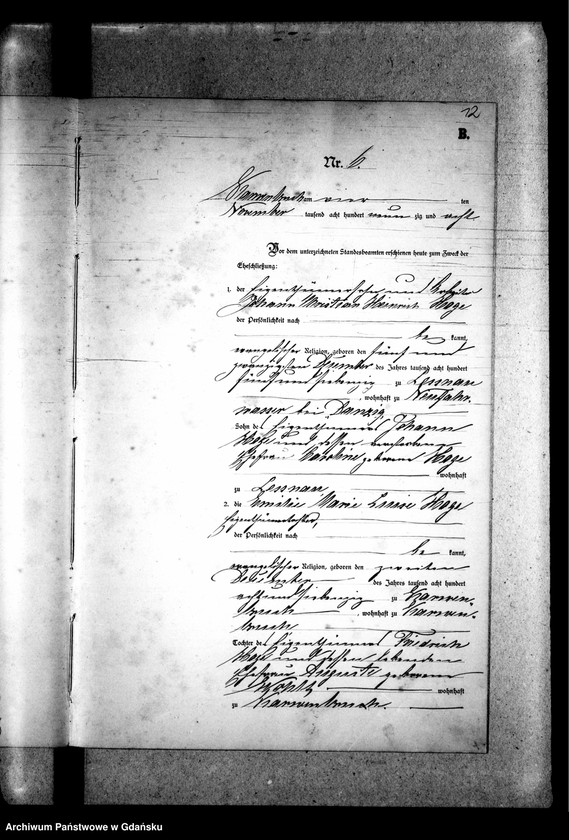 12
B.
Nr. 6.
Karwenbruch am vier ten
November tausend acht hundert neun zig und acht
Vor dem unterzeichneten Standesbeamten erschienen heute zum Zweck der
Eheschließung:
1. der Eigenthümersohn und
Johann Christian Heinrich Hoge
der Persönlichkeit nach
be kannt,
evangelischer Religion, geboren den fünf und
zwanzigsten Dezember des Jahres tausend acht hundert
fünf und siebenzig zu Lessnau
, wohnhaft zu Neufahr-
wasser bei Danzig
Sohn des Eigenthümers Johann
Hoge und dessen verstorbene
Ehefrau Caroline geborene Hoge
wohnhaft
zu Lessnau
2. die Emilie Marie Luise Hoge
Eigenthümertochter,
der Persönlichkeit nach
be kannt,
evangelischer Religion, geboren den zweiten
Dezember des Jahres tausend acht hundert
acht und siebenzig zu Karwen-
bruch , wohnhaft zu Karwen-
bruch
Tochter des Eigenthümers Friedrich
Hoge und dessen lebenden
Ehefrau Auguste geborene
wohnhaft
zu Karwenbruch
Archiwum Państwowe w Gdańsku